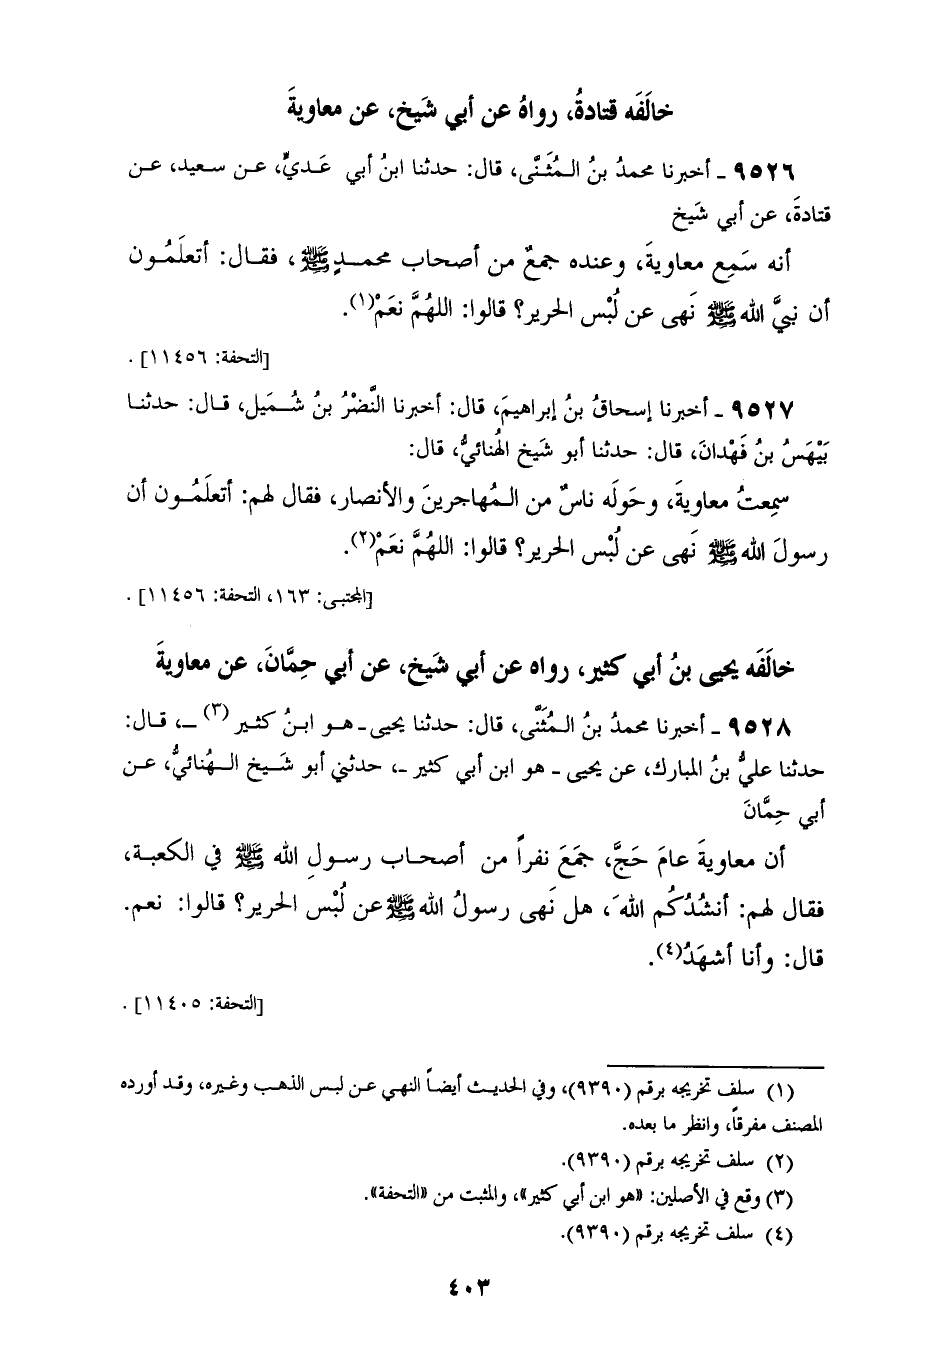 خالَفَه قتادةُ، رواهُ عن أبي شَيخ، عن معاويةَ
٩٥٢٦ ـ أخبرنا محمدُ بنُ المُثَنَّى، قال: حدثنا ابنُ أبي عَديٍّ، عن سعيد، عن
قتادةَ، عن أبي شَيخ
أنه سَمِع معاويةَ، وعنده جمعٌ من أصحاب محمدٍ ﷺ، فقال: أتعلَمُون
أن نبيَّ الله ﷺ نَهى عن لُبْس الحرير؟ قالوا: اللهُمَّ نعَمْ(١).
[التحفة: ١١٤٥٦].
٩٥٢٧ ـ أخبرنا إسحاقُ بنُ إبراهيمَ، قال: أخبرنا النَّضْرُ بنُ شُمَيل، قال: حدثنا
بَيْهَسُ بنُ فَهْدانَ، قال: حدثنا أبو شَيخ الهُنائيُّ، قال:
سمِعتُ معاويةَ، وحَولَه ناسٌ من المُهاجرينَ والأنصار، فقال لهم: أتعلَمُون أن
رسولَ الله ﷺ نَهى عن لُبْس الحرير؟ قالوا: اللهُمَّ نعَمْ(٢).
[المجتبى: ١٦٣، التحفة: ١١٤٥٦].
خالَفَه يحيى بنُ أبي كثير، رواه عن أبي شَيخ، عن أبي حِمَّانَ، عن معاويةَ
٩٥٢٨ ـ أخبرنا محمدُ بنُ المُثَنَّى، قال: حدثنا يحيى ـ هو ابنُ كثير (٣) ـ، قال:
حدثنا عليُّ بنُ المبارك، عن يحيى ـ هو ابن أبي كثير ـ، حدثني أبو شَيخ الهُنائيُّ، عن
أبي حِمَّانَ
أن معاويةَ عامَ حَجَّ، جمَعَ نفراً من أصحاب رسولِ الله ﷺ في الكعبة،
فقال لهم: أنشُدُكُم اللهَ، هل نَهى رسولُ الله ﷺ عن لُبْس الحرير؟ قالوا: نعم.
قال: وأنا أشهَدُ(٤).
[التحفة: ١١٤٠٥].
(١) سلف تخريجه برقم (٩٣٩٠)، وفي الحديث أيضاً النهي عن لبس الذهب وغيره، وقد أورده
المصنف مفرقاً، وانظر ما بعده.
(٢) سلف تخريجه برقم (٩٣٩٠).
(٣) وقع في الأصلين: «هو ابن أبي كثير»، والمثبت من «التحفة».
(٤) سلف تخريجه برقم (٩٣٩٠).
٤٠٣